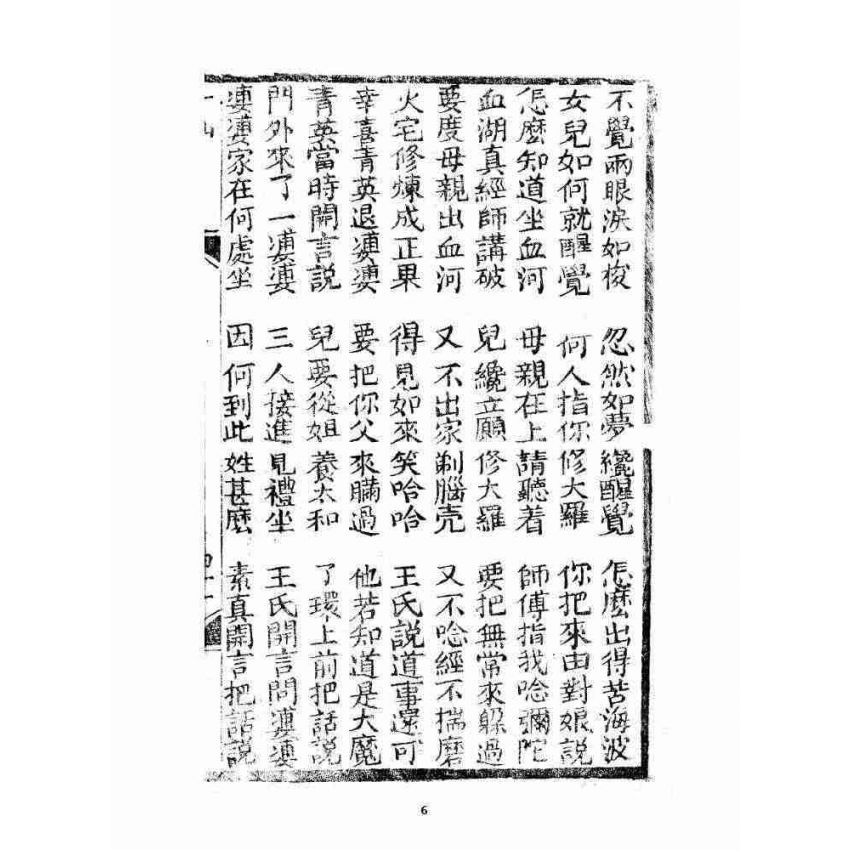 不覺兩眼淚如梭 忽然如夢纔醒覺 怎麽出得苦海波
女兒如何就醒覺 何人指你修大羅 你把來由對娘說
怎麽知道坐血河 母親在上請聽着 師傅指我唸彌陀
血湖真經師講破 兒纔立願修大羅 要把無常來躲過
要度母親出血河 又不出家剃腦壳 又不唸經不揣磨
火宅修煉成正果 得見如來笑哈哈 王氏說道事還可
幸喜青英退婆婆 要把你父來瞞過 他若知道是大魔
青英當時開言說 兒要從姐養太和 了環上前把話說
門外來了一婆婆 三人接進見禮坐 王氏開言問婆婆
婆婆家在何處坐 因何到此姓甚麽 素真開言把話說
6